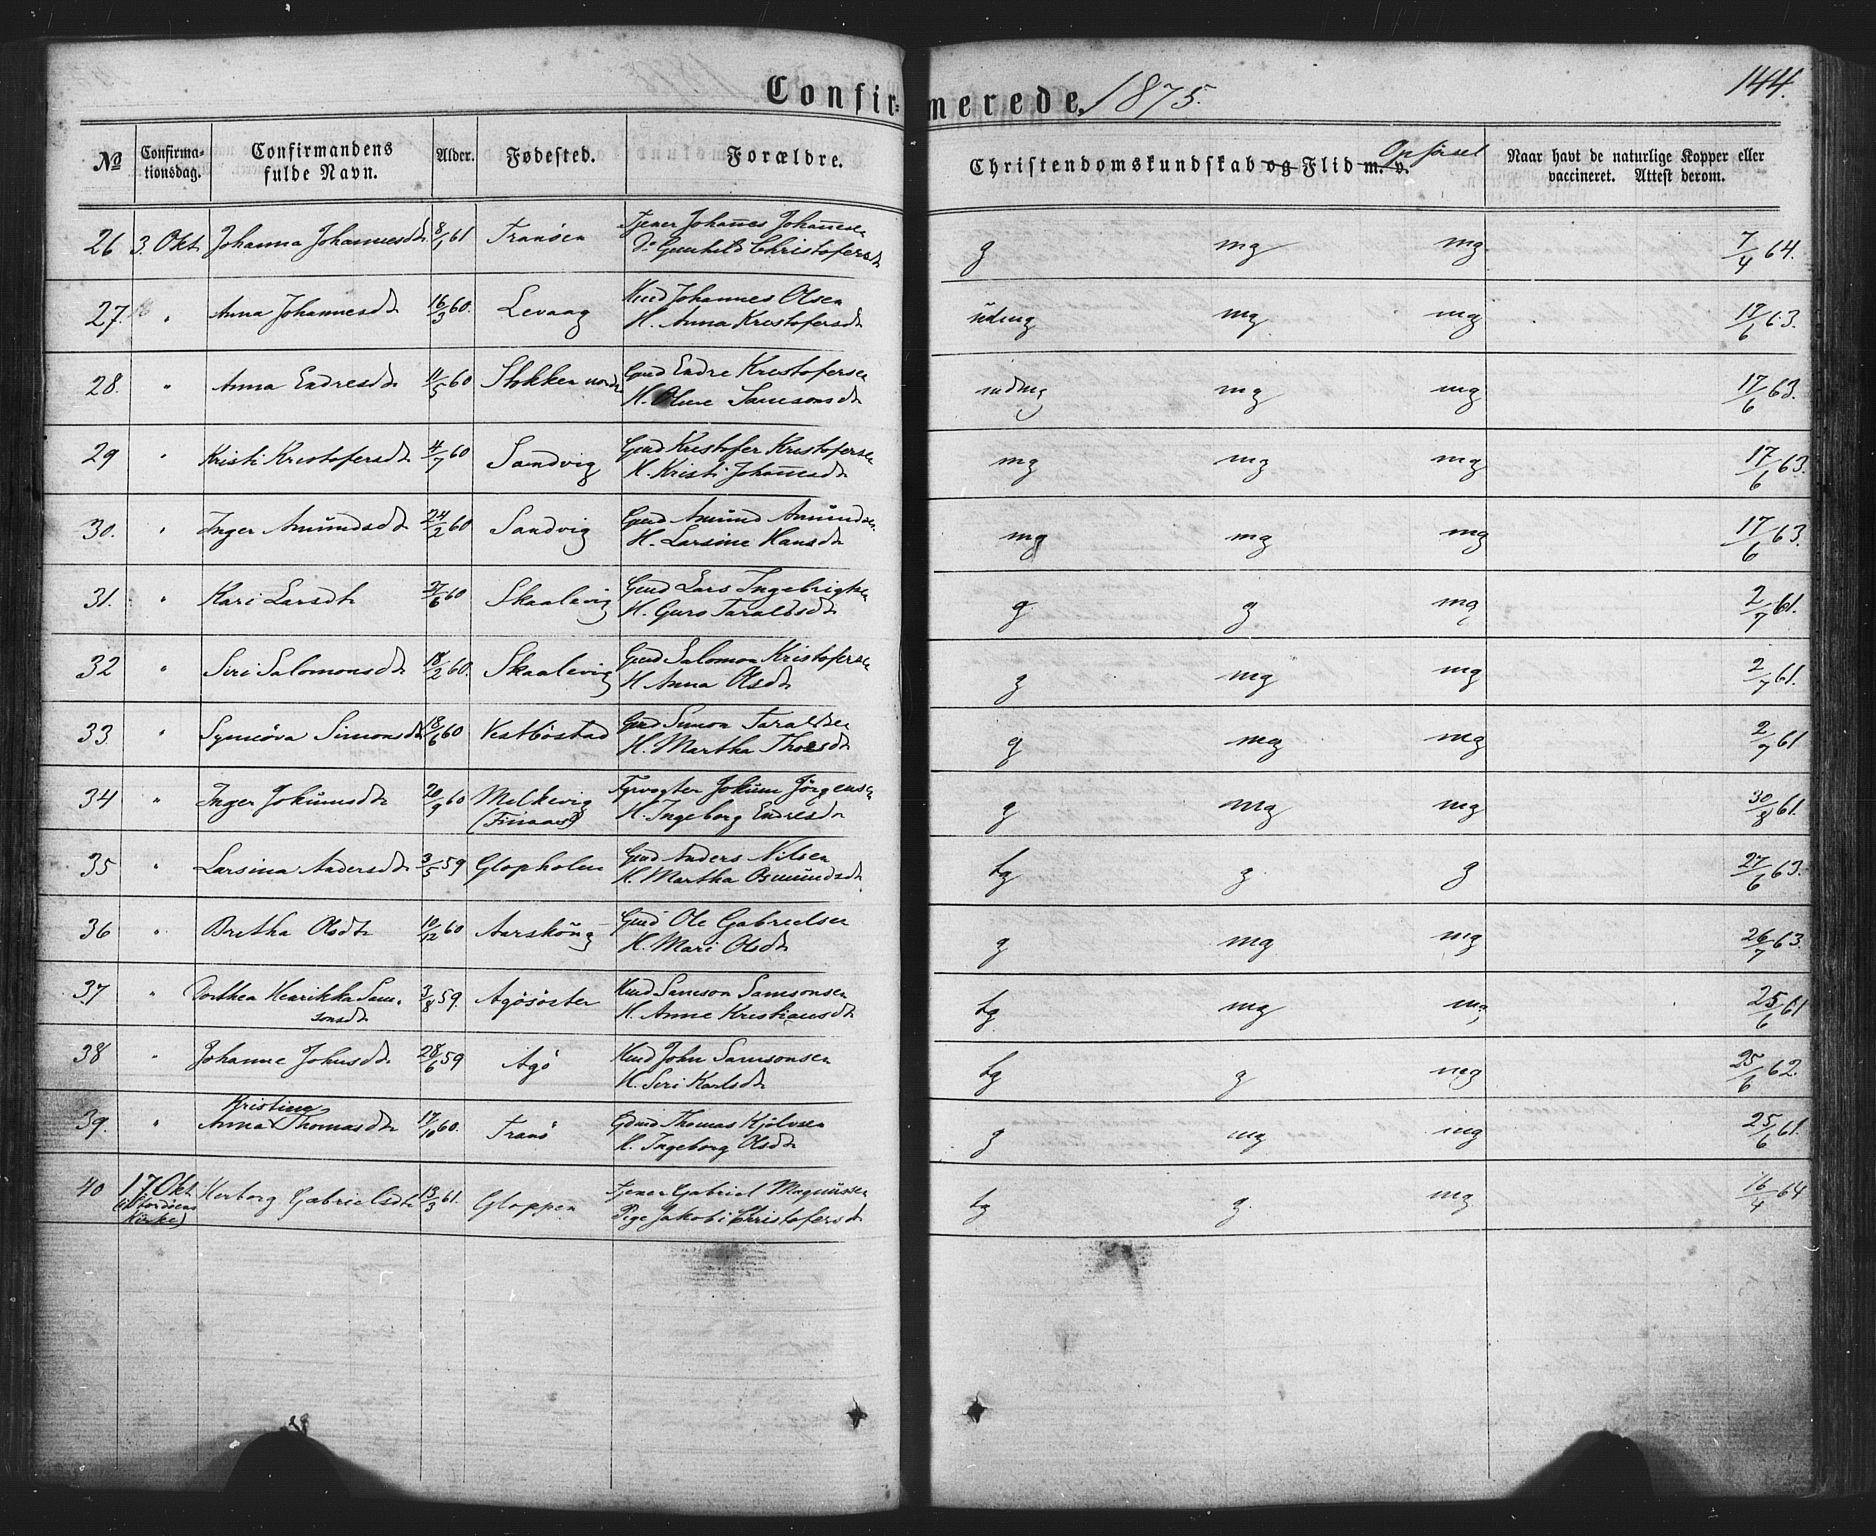 144.
Confirmerede 1875.
No Confirmationsdag. Confirmandens fulde Navn. Alder. Fødested. Forældre. Christendomskundskab og Flid m. v. Opførsel Naar havt de naturlige Kopper eller vaccineret. Attest derom.
26 3. Okt Johanna Johannesdt 8/1 61 Tranøen Tjener Johañes Johañesen
Do Gunhild Christofersdt g mg mg 7/4 64.
27. " Anna Johannesdt 16/3 60. Levaag Huud Johannes Olsen
H. Anna Kristofersdt üdmg mg mg 17/6 63.
28. " Anna Endresdt 11/5 60 Stokken nordr Gmd Endre Kristofersen
H. Oline Samsonsdt udmg mg mg 17/6 63.
29 " Kristi Kristofersdt 4/7 60 Sandvig Gmd Kristofer Kristofersen
H. Kristi Johañesdt mg mg mg 17/6 63.
30. " Inger Amündsdt 24/2 60 Sandvig Gmd Amünd Amündsen
H. Larsine Hansdt mg mg mg 17/6 63.
31. " Kari Larsdt 27/6 60 Skaalevig Gmd Lars Ingebrigtsen
H. Guro Taraldsdt g g mg 2/7 61.
32 " Siri Salomonsdt 18/2 60. Skaalevig Gmd Salomon Kristofersen
H Anna Olsdt g mg mg 2/7 61.
33 " Synnöva Simonsdt 18/6 60 Vestbøstad Gmd Simon Taraldsen
H. Martha Thoesdt g mg mg 2/7 61
34 " Inger Jokümsdt 20/9 60 Melkevig
(Finaas) Fyrvogter Joküm Jörgensen
H. Ingeborg Endresdt g mg mg 30/8 61.
35 " Larsina Andersdt 3/5 59 Glopholm Gmd Anders Nilsen
H. Martha Osmündsdt tg g g 27/6 63.
36 " Bretha Olsdt 10/12 60 Aarskög Gmd Ole Gabrielsen
H. Mari Olsdt g mg mg 26/7 63.
37 " Dorthea Henrikka Samsonsdt 3/8 59. Agösöster Huud Samson Samsonsen
H. Anne Kristiansdt tg mg mg 25/6 61
38 " Johanne Johnsdt 28/6 59 Agö Huud John Samsonsen
H. Siri Karlsdt tg g mg 25/6 62.
39. " Anna Kristina Thomasdt 17/10 60. Tranö Gdmd Thomas Kjölvsen
H. Ingeborg Olsdt g mg mg 25/6 61.
40 17 Okt
(i Stordöens Kirke) Herborg Gabrielsdt 13/3 61. Gloppen Tjener Gabriel Magnüssen
Pige Jakobi Christofersdt tg g mg 16/4 64